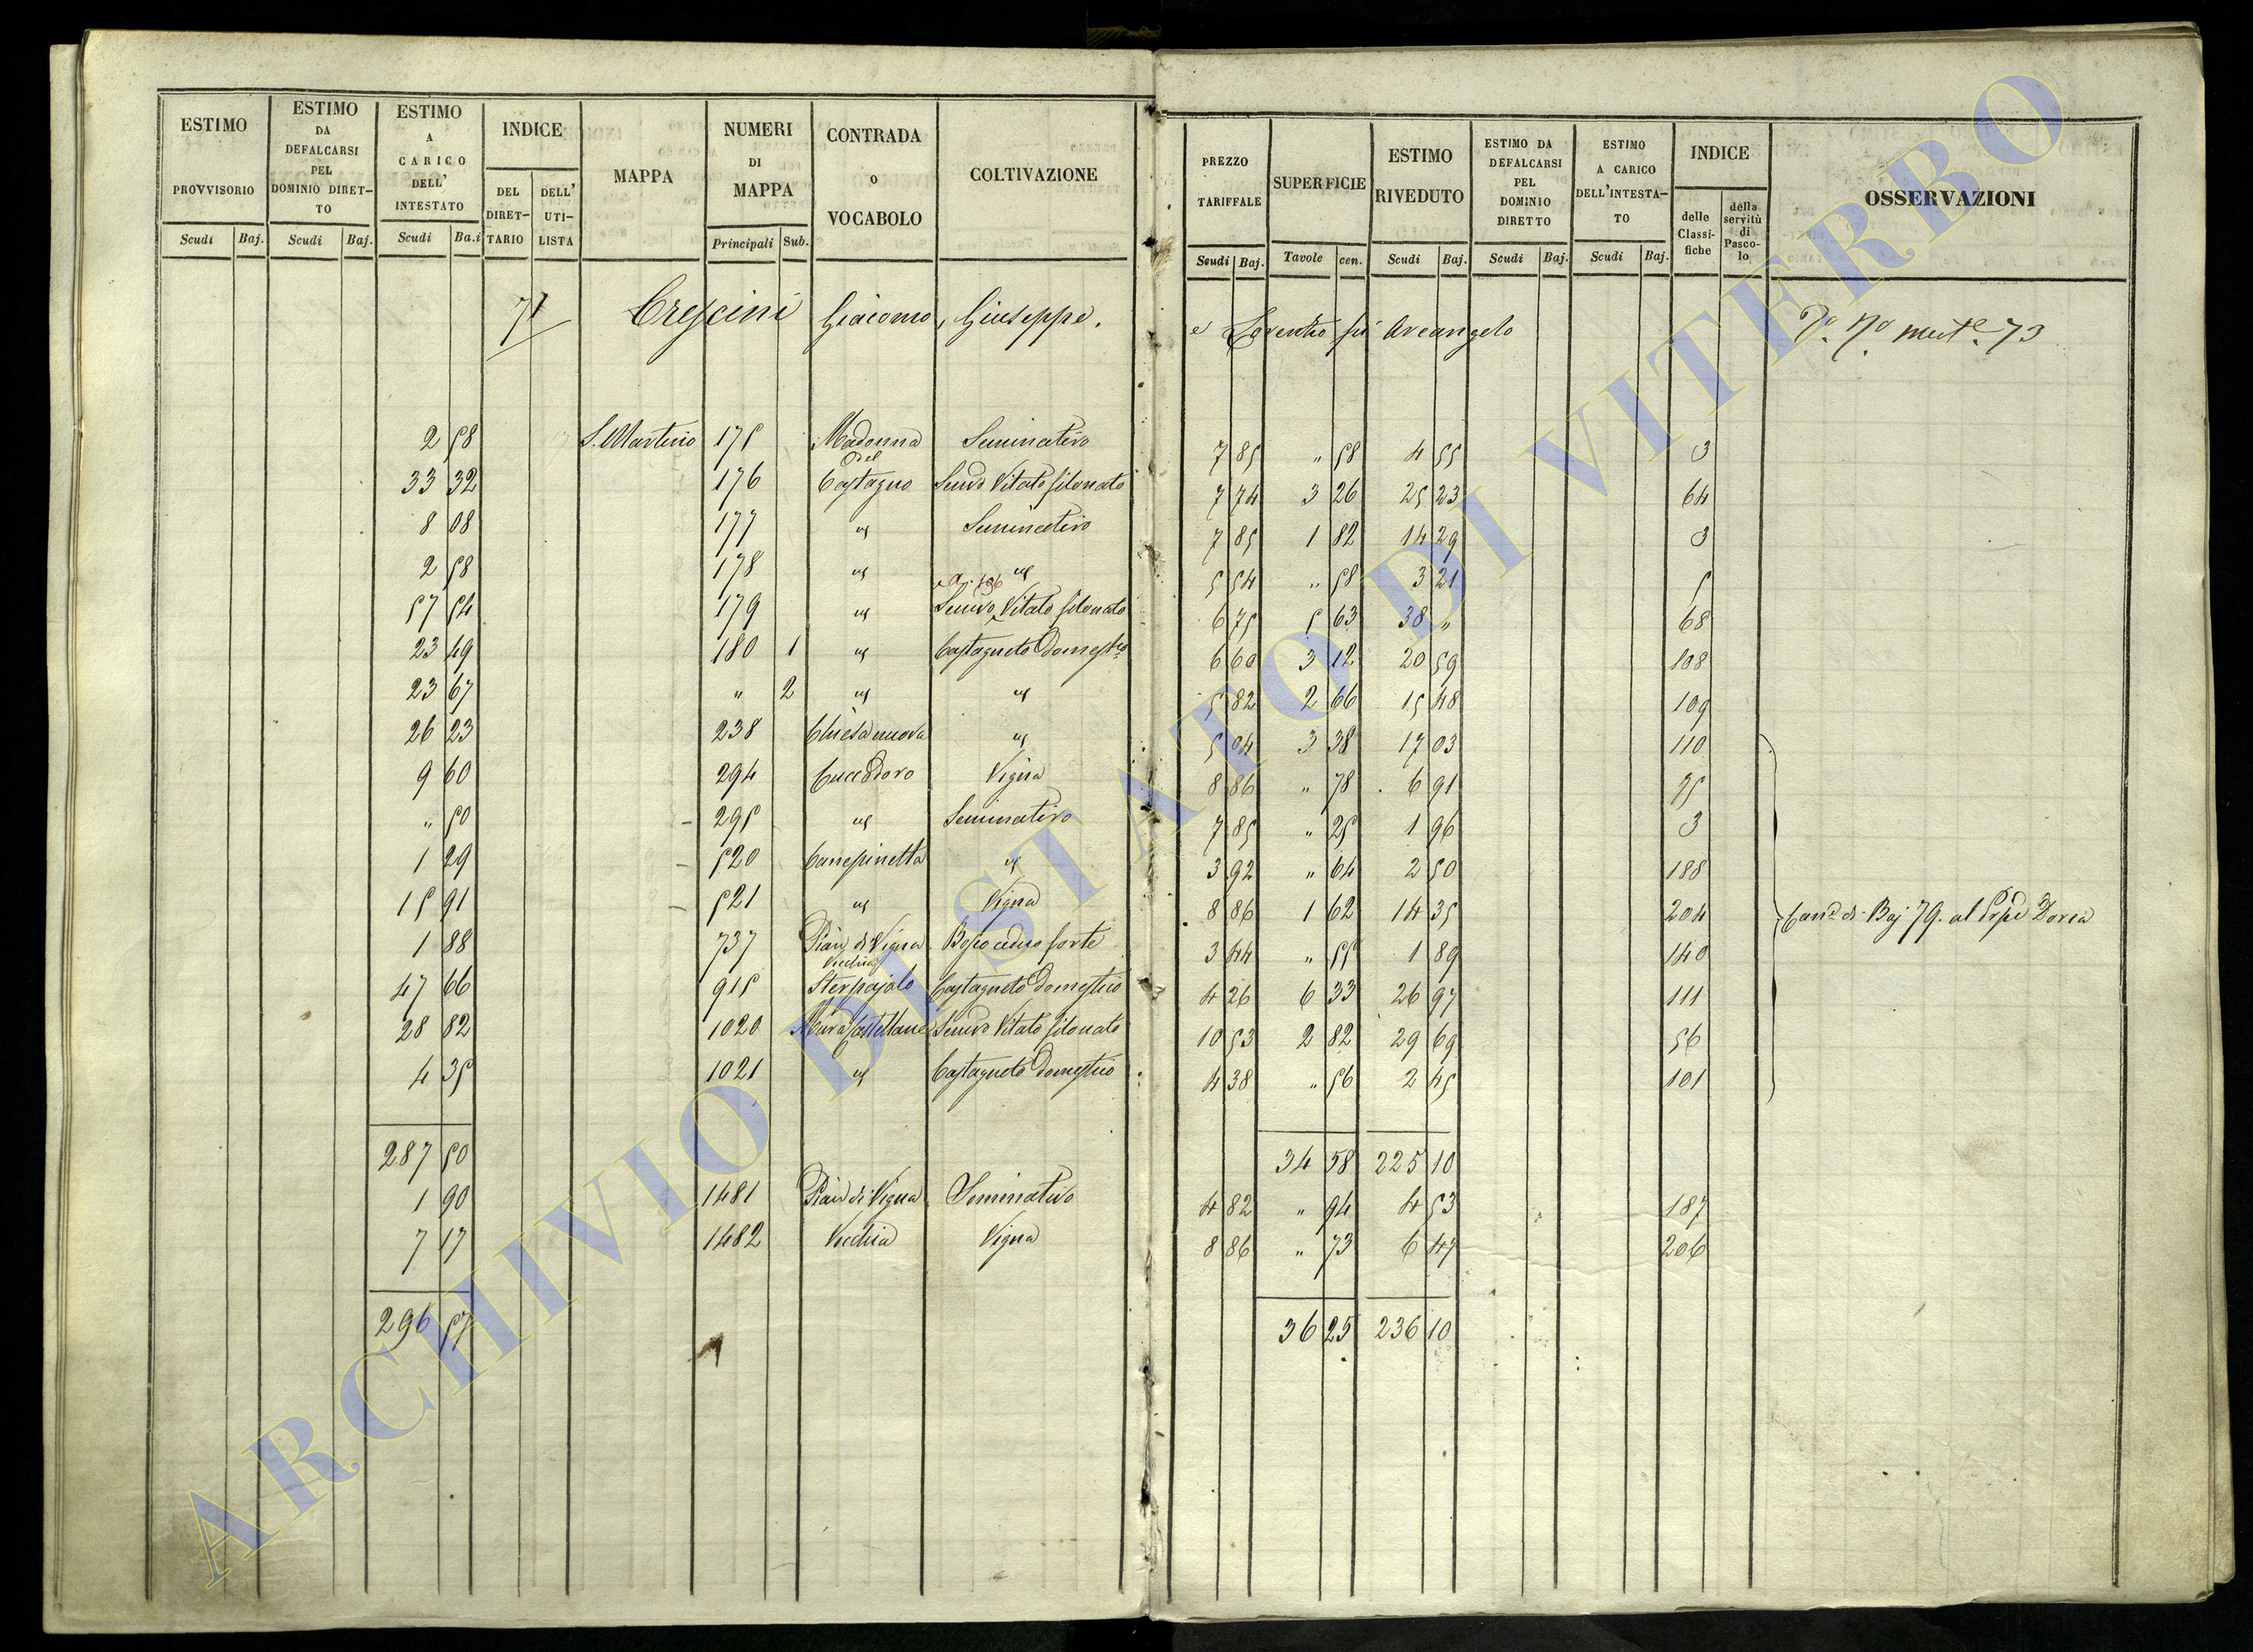 ESTIMO PROVVISORIO | ESTIMO DA DEFALCARSI PEL DOMINIO DIRET-TO | ESTIMO A CARICO DELL' INTESTATO | INDICE DEL DIRET-TARIO | DELL' UTI-LISTA | MAPPA | NUMERI DI MAPPA | CONTRADA O VOCABOLO | COLTIVAZIONE | PREZZO TARIFFALE | SUPERFICIE | ESTIMO RIVEDUTO | ESTIMO DA DEFALCARSI PEL DOMINIO DIRETTO | ESTIMO A CARICO DELL'INTESTA-TO | INDICE delle Classi-fiche | della servitù di Pasco-lo | OSSERVAZIONI
Scudi Baj. Scudi Baj. Scudi Ba.i Principali Sub. Scudi Baj. Tavole cen. Scudi Baj. Scudi Baj. Scudi Baj.
71 Crescini Giacomo, Giuseppe, e Lorenzo fu Arcangelo 73
2 58 S. Martino 175 Madonna del Seminativo 7 85 " 58 4 55 3
33 32 176 Castagno Semvo Vitato filonato 7 74 3 26 25 23 64
8 08 177 id Seminativo 7 85 1 82 14 29 3
2 58 178 id id 5 54 " 58 3 21 5
57 54 179 id Semvo Vitato filonato 6 75 5 63 38 " 68
23 49 180 1 id Castagneto Domestco 6 60 3 12 20 59 108
23 67 " 2 id id 5 82 2 66 15 48 109
26 23 238 Chiesa nuova id 5 04 3 38 17 03 110
9 60 294 Cuccodoro Vigna 8 86 " 78 6 91
" 50 295 id Seminativo 7 85 " 25 1 96 3
1 29 520 Canepinetta id 3 92 " 64 2 50 188
15 91 521 id Vigna 8 86 1 62 14 35 204 Cane di Baj 79. al Doria
1 88 737 Pian di Vigna Vecchia Bosco ceduo forte 3 44 " 55 1 89 140
47 66 915 Sterpajolo Castagneto Domestico 4 26 6 33 26 97 111
28 82 1020 Mura Castellane Semvo Vitato filonato 10 53 2 82 29 69 56
4 35 1021 id Castagneto Domestico 4 38 " 56 2 45 101
287 50 34 58 225 10
1 90 1481 Pian di Vigna Seminativo 4 82 " 94 4 53 187
7 17 1482 Vecchia Vigna 8 86 " 73 6 47 206
296 57 36 25 236 10
ARCHIVIO DI STATO DI VITERBO